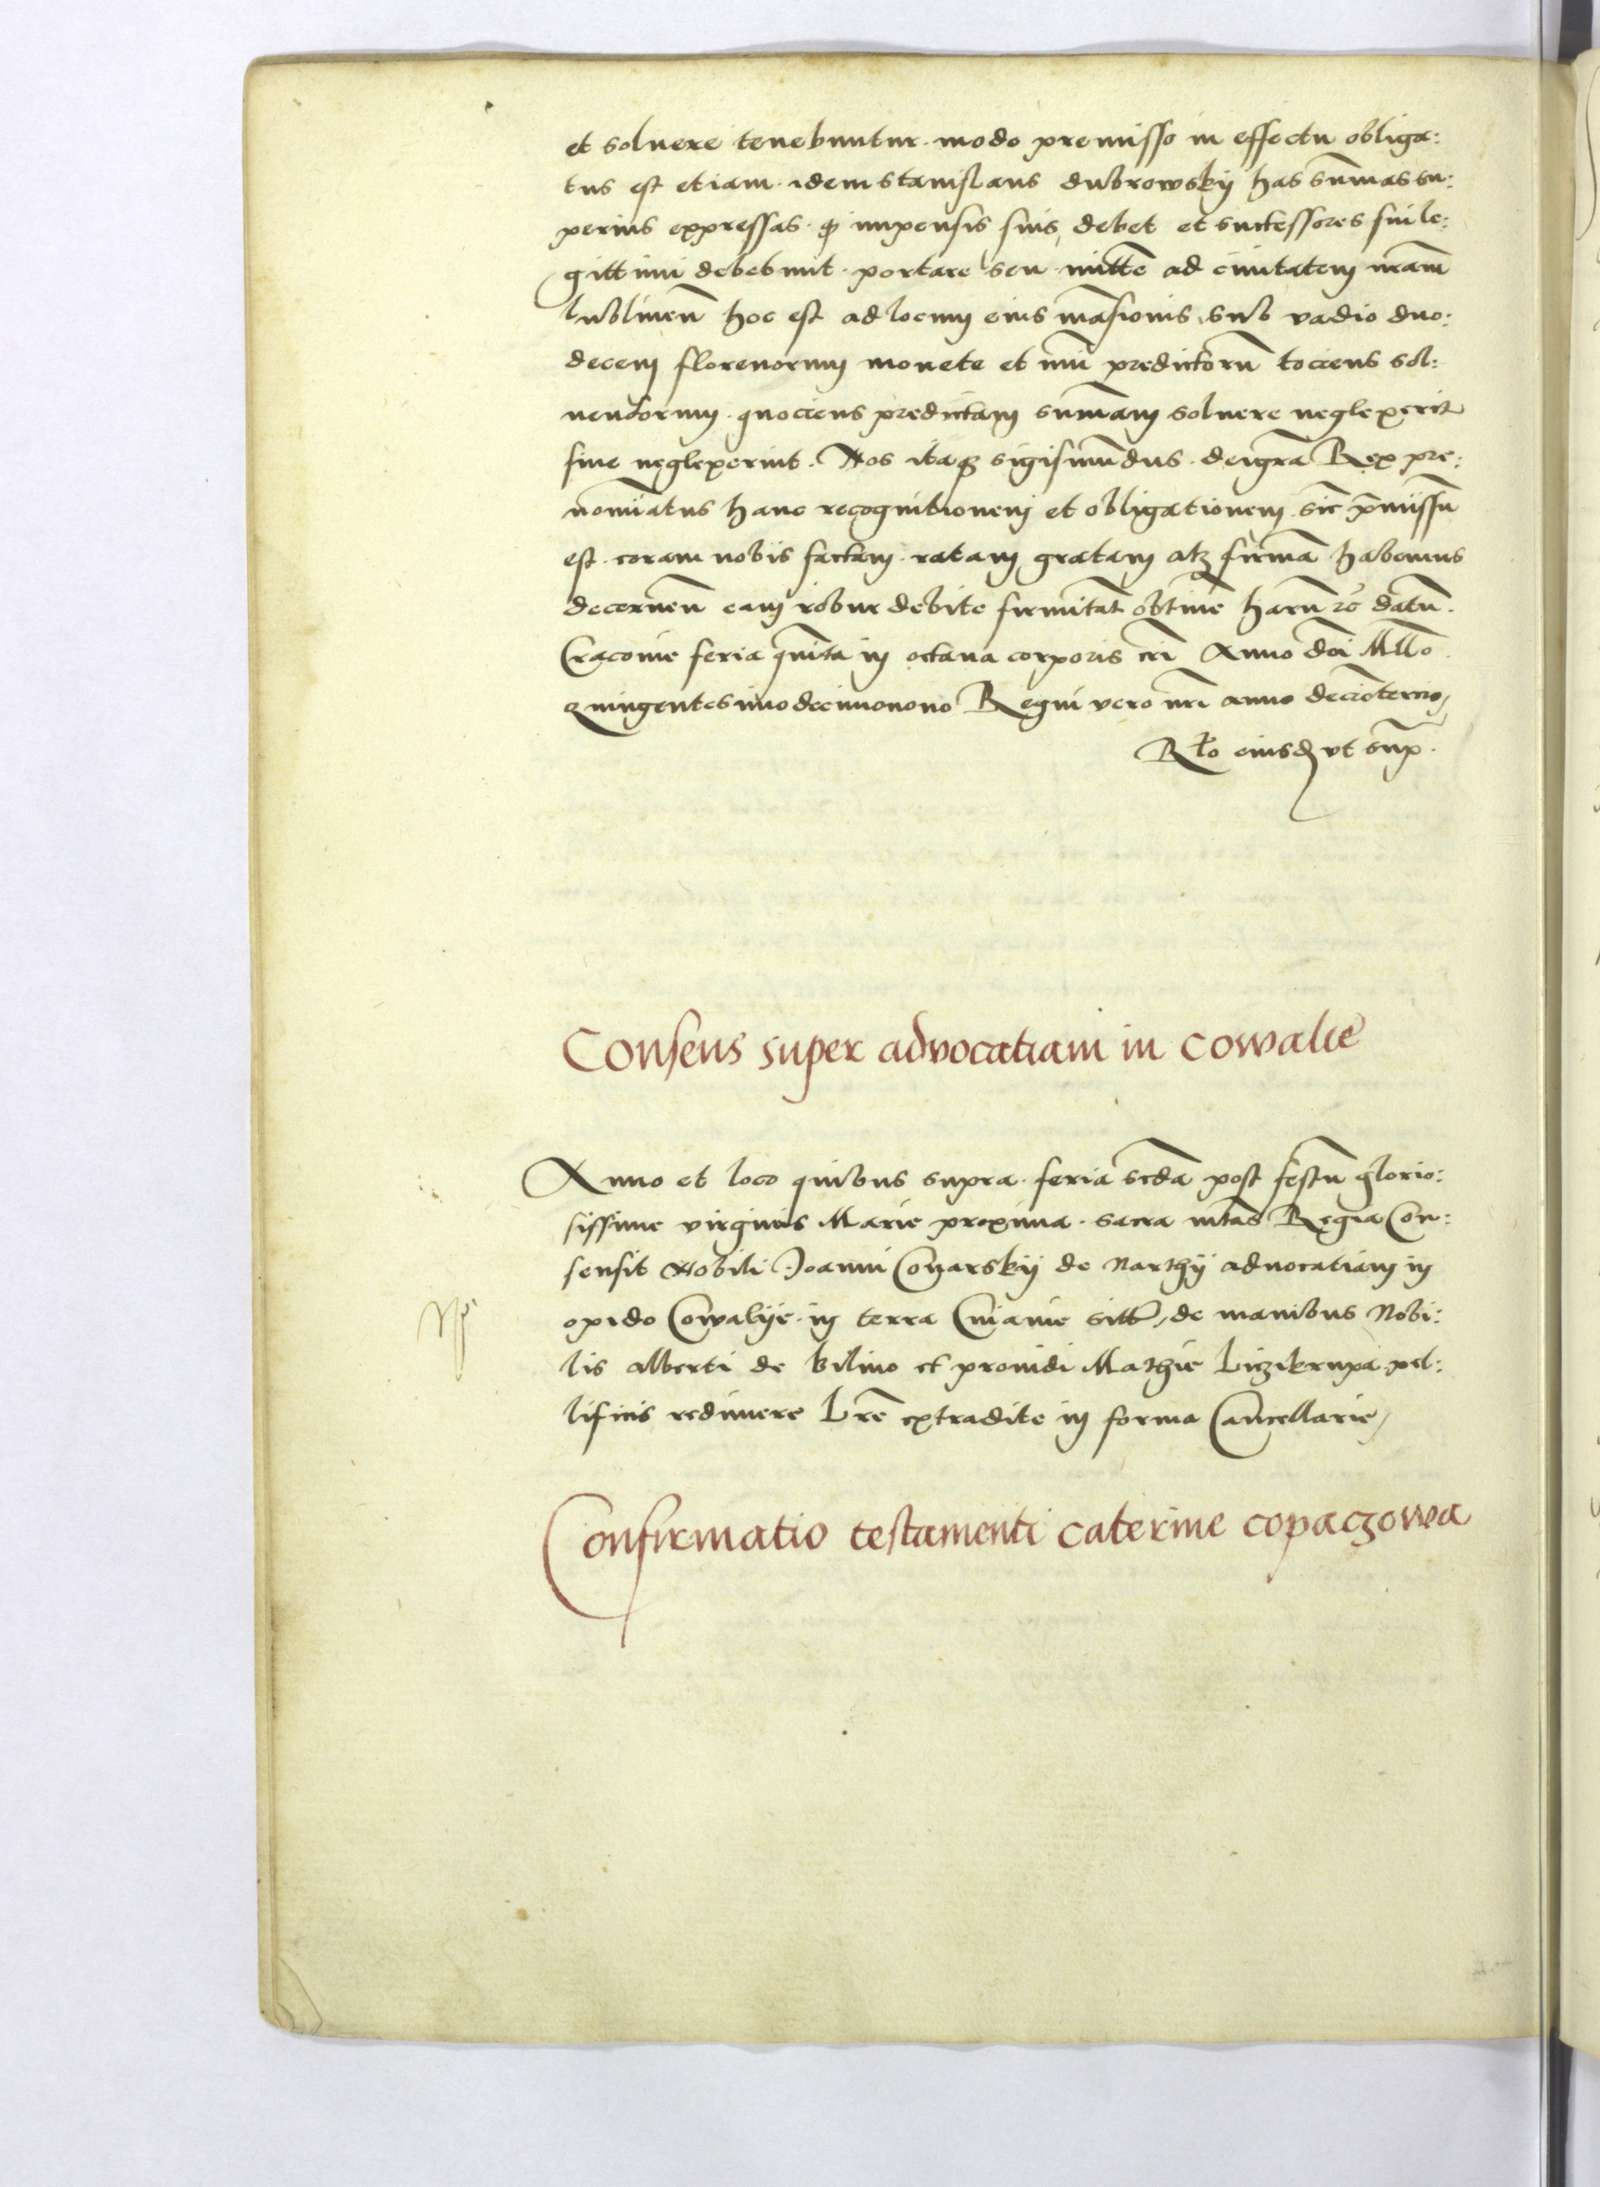 et soluere tenebuntur · modo premisso in effectu obliga:
tus est etiam · idem stanislaus dubrowskÿ has sum̄as su:
perius expressas · impensis suis, debet et successores sui le:
gittimi debebunt · portare seu mitt̄e ad ciuitatem nr̄am
lublineñ hoc est ad locum eius mān̄sionis sub vadio duo:
decem florenorum monete et nūi predictorū tociens sol:
uendorum · quociens predictam sum̄am soluere neglexerit
siue neglexerint · Nos itaq sigismūdus · dei gr̄a Rex pre:
nomiātus hanc recognitionem et obligationem sic p̄missū
est · coram nobis factam · ratam gratam atq firmā habemus
decerneñ eam robur debite firmitat̄ obtine harū &c̄ datū ·
Cracouie feria quīta in octaua corporis cri Anno dn̄i Mll̄o
quingentesimodecimonono Regni vero nri anno deciōtercio,
Rl̄o eiusd vt sup̄ ·
Consens super advocatiam in cowalie
Anno et loco quibus supra · feria scd̄a post festū glorio:
sissime virginis Marie proxima · sacra mtas Regia Con:
sensit Nobili Joanni Conarskÿ de Narthÿ aduocatiam in
opido Cowalÿe · in terra Cuiauie sitt̄, de manibus Nobi:
lis alberti de kilino et prouidi Mathie Liczikrupa pel:
lificis redimere Lr̄e extradite in forma Cancellarie,
Confirmatio testamenti caterine copaczowa